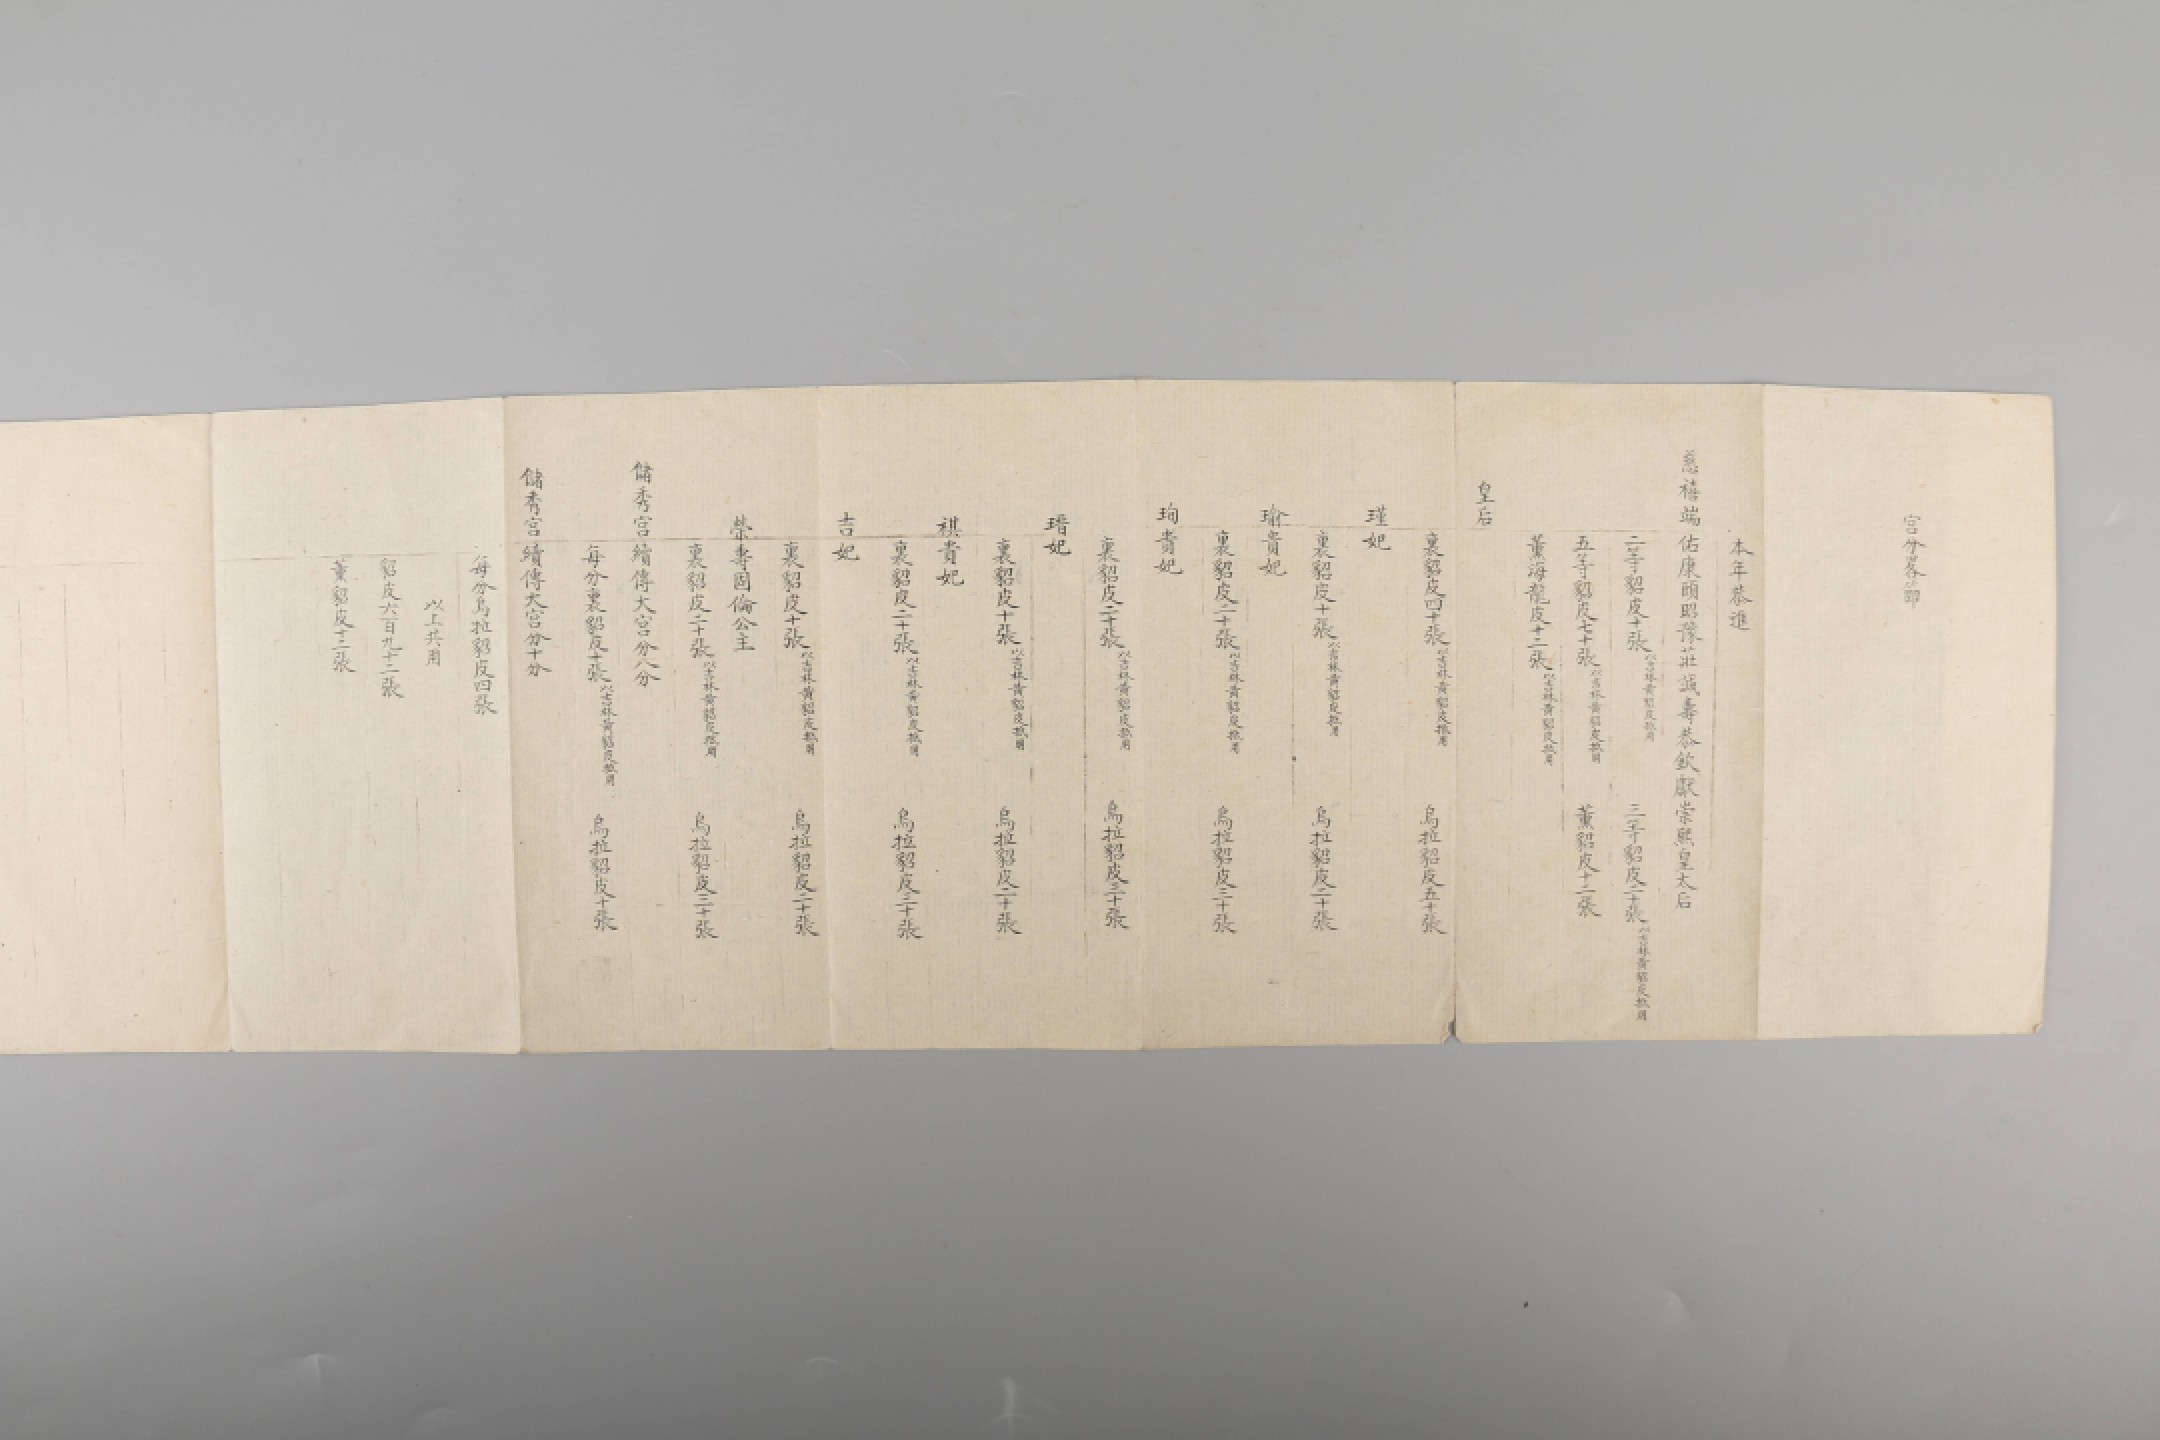 宮分畧節
本年恭進
慈禧端佑康頤昭豫莊誠壽恭欽獻崇熙皇太后
二等貂皮十張以吉林黃貂皮抵用 三等貂皮二十張以吉林黃貂皮抵用
五等貂皮七十張以吉林黃貂皮抵用 薰貂皮十二張
薰海龍皮十二張以吉林黃貂皮抵用
皇后
裏貂皮四十張以吉林黃貂皮抵用 烏拉貂皮五十張
瑾妃
裏貂皮十張以吉林黃貂皮抵用 烏拉貂皮二十張
瑜貴妃
裏貂皮二十張以吉林黃貂皮抵用 烏拉貂皮三十張
珣貴妃
裏貂皮二十張以吉林黃貂皮抵用 烏拉貂皮三十張
瑨妃
裏貂皮十張以吉林黃貂皮抵用 烏拉貂皮二十張
祺貴妃
裏貂皮二十張以吉林黃貂皮抵用 烏拉貂皮三十張
吉妃
裏貂皮十張以吉林黃貂皮抵用 烏拉貂皮二十張
榮壽固倫公主
裏貂皮二十張以吉林黃貂皮抵用 烏拉貂皮三十張
儲秀宮續傳大宮分八分
每分裏貂皮十張以吉林黃貂皮抵用 烏拉貂皮十張
儲秀宮續傳大宮分十分
每分烏拉貂皮四張
以上共用
貂皮六百九十二張
薰貂皮十二張